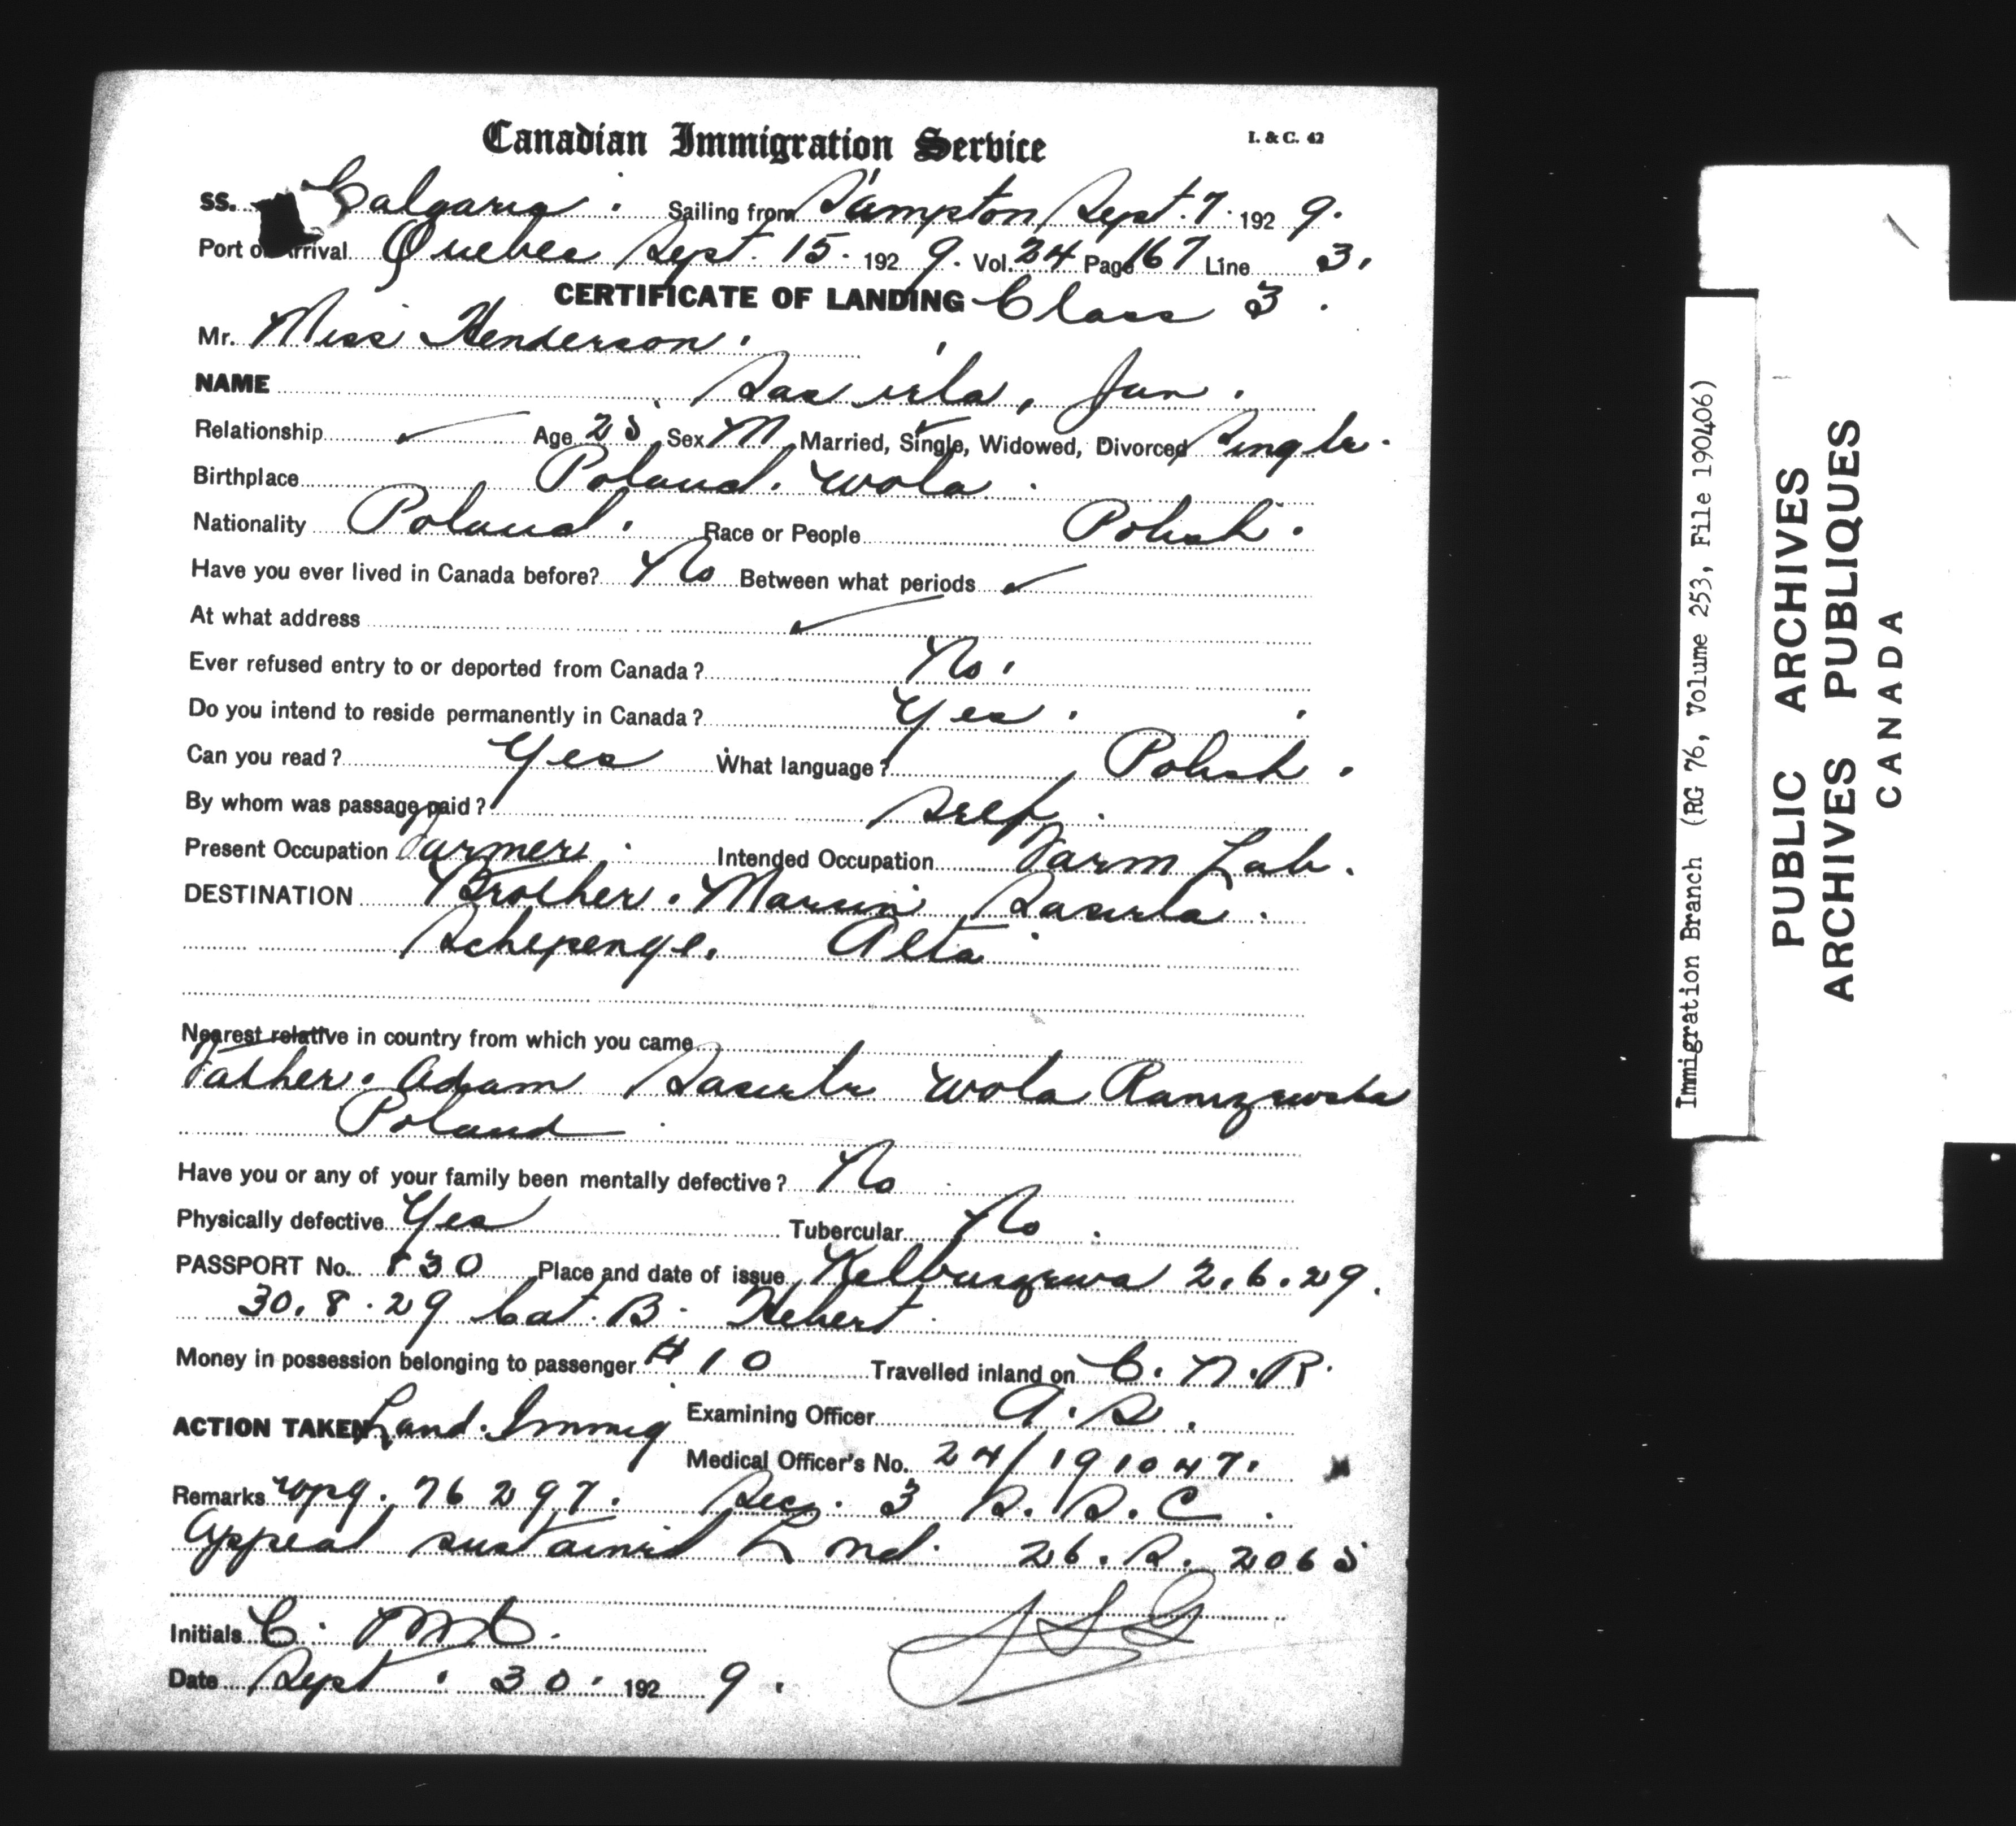 Canadian Immigration Service I. & C. 42
SS. Calgaria. Sailing from S'ampton Sept. 7. 192 9.
Port of Arrival Quebec Sept. 15. 192 9. Vol. 24 Page 167 Line 3.
CERTIFICATE OF LANDING Class 3.
Mr. Miss Henderson.
NAME Jan.
Relationship ✓ Age 25 Sex M Married, Single, Widowed, Divorced Single.
Birthplace Poland. Wola.
Nationality Poland. Race or People Polish.
Have you ever lived in Canada before? No Between what periods ✓
At what address ✓
Ever refused entry to or deported from Canada? No.
Do you intend to reside permanently in Canada? Yes.
Can you read? Yes What language? Polish.
By whom was passage paid? Self.
Present Occupation Farmer. Intended Occupation Farm Lab.
DESTINATION Brother. Marcin
Schepenge. Alta
Nearest relative in country from which you came
Father. Adam Wola
Poland
Have you or any of your family been mentally defective? No
Physically defective Yes Tubercular No.
PASSPORT No. 830 Place and date of issue 2.6.29.
30.8.29 Cat. B. Hebert
Money in possession belonging to passenger $10 Travelled inland on C.N.R.
ACTION TAKEN Land. Immig Examining Officer A.S.
Medical Officer's No. 24/191047.
Remarks Wpg. 76297. Sec. 3 S.S.C.
Appeal sustained Lnd. 26.S. 2065
Initials C.
Date Sept. 30. 192 9.
Immigration Branch (RG 76, Volume 253, File 190406)
PUBLIC ARCHIVES
ARCHIVES PUBLIQUES
CANADA